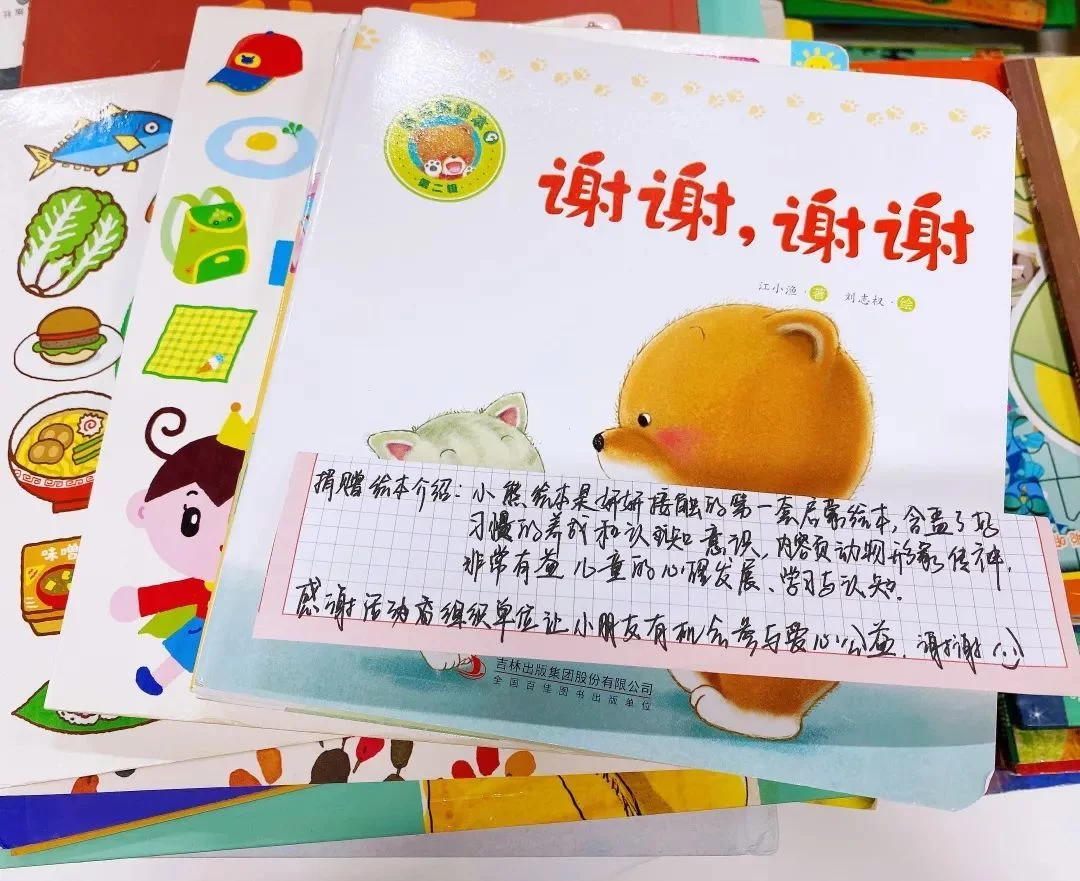 小熊绘本
第二辑
谢谢，谢谢
江小渔·著 刘志权·绘
捐赠绘本介绍：小熊绘本是妍妍接触的第一套启蒙绘本，含盖了好
习惯的养成和认知意识，内容页动物形象传神，
非常有益儿童的心理发展、学习与认知。
感谢活动商组织单位让小朋友有机会参与爱心公益，谢谢(:)
吉林出版集团股份有限公司
全国百佳图书出版单位
味噌